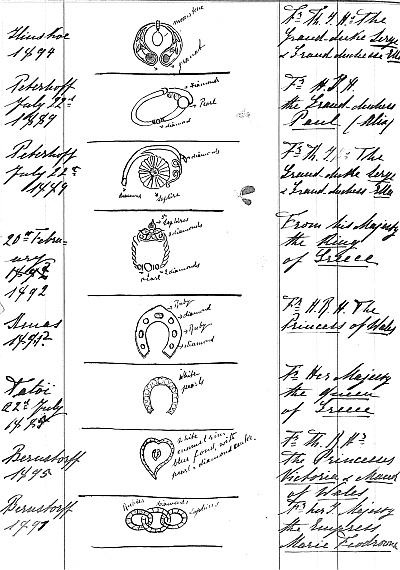 1894
moonstone
garnet
Fr Th. I. Hs the
Grand duke Serge
& Grand duchesse Ella
Peterhoff
July 22d
1889
diamonds
Pearl
diamond
Fr H. I. H.
the Grand duchess
Paul (Alix)
Peterhoff
July 22d
1889
diamonds
diamond
Saphire
Fr Th. I. Hs The
Grand duke Serge
& Grand duchess Ella
20th Febru-
ary
1892
Saphires
diamonds
pearl & diamonds
From his Majesty
the King
of Greece
Xmas
Ruby
diamond
Ruby
diamond
Fr H.R.H. The
Princess of Wales
Tatoi
22d July
White
pearls
Fr Her Majesty
the Queen
of Greece
Bernstorff
1895
White
enamel rim
blue fond, with
pearl & diamond
Fr Th. R. Hs
the Princesses
Victoria & Maud
of Wales
Bernstorff
Rubies
Diamonds
Saphires
Fr her I. Majesty
the Empress
Marie Feodorovna